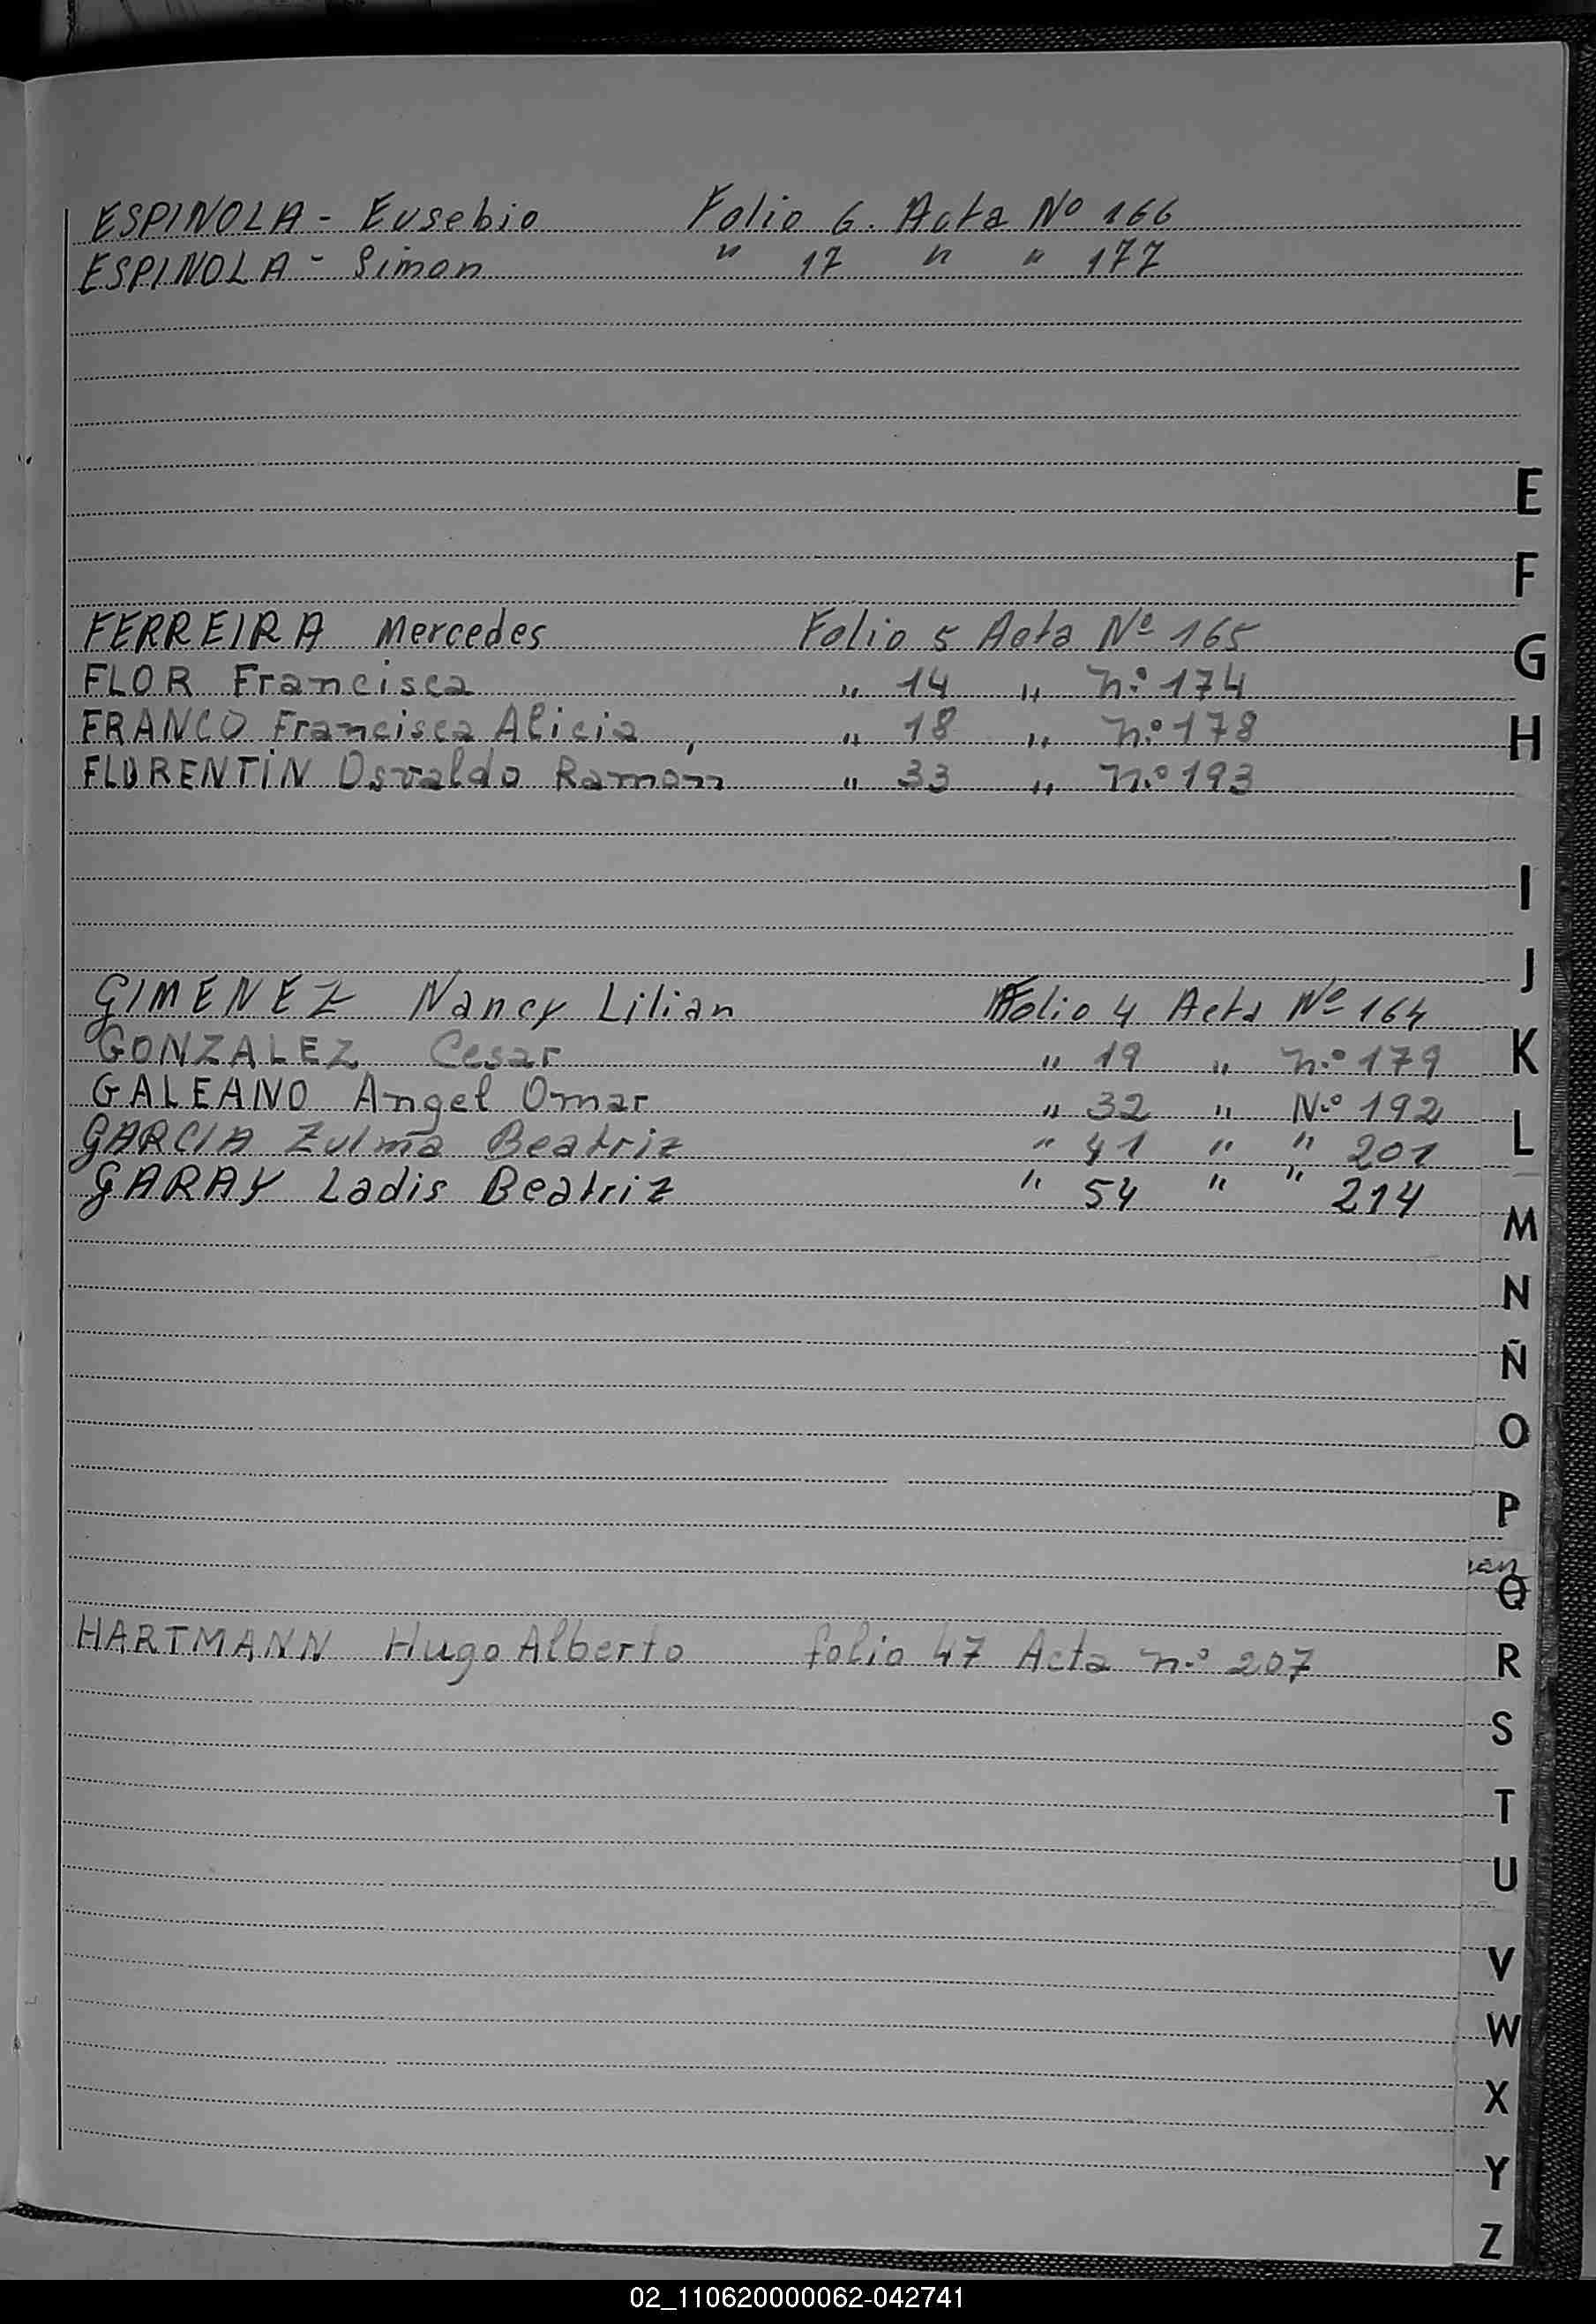 ESPINOLA - Eusebio Folio 6. Acta Nº 166
ESPINOLA - Simon " 17 " " 177
FERREIRA Mercedes Folio 5 Acta Nº 165
FLOR Francisca " 14 " n.º 174
FRANCO Francisca Alicia, " 18 " n.º 178
FLORENTIN Osvaldo Ramón " 33 " n.º 193
GIMENEZ Nancy Lilian Folio 4 Acta Nº 164
GONZALEZ Cesar " 19 " n.º 179
GALEANO Angel Omar " 32 " N.º 192
GARCIA Zulma Beatriz " 41 " " 201
GARAY Ladis Beatriz " 54 " " 214
HARTMANN Hugo Alberto folio 47 Acta n.º 207
E
F
G
H
I
J
K
L
M
N
Ñ
O
P
Q
R
S
T
U
V
W
X
Y
Z
02_110620000062-042741